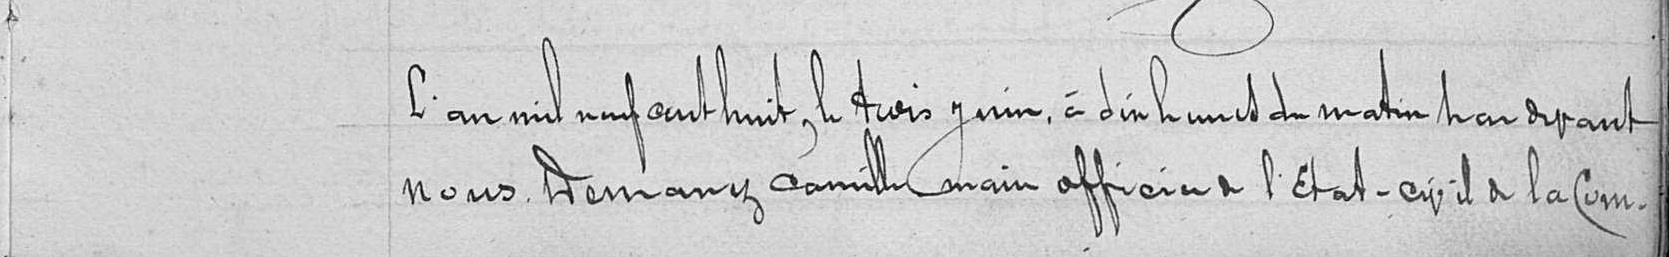 L'an mil neuf cent huit, le trois juin, à dix heures du matin par devant
nous Demany Camille maire officier de l'Etat-civil de la Com-